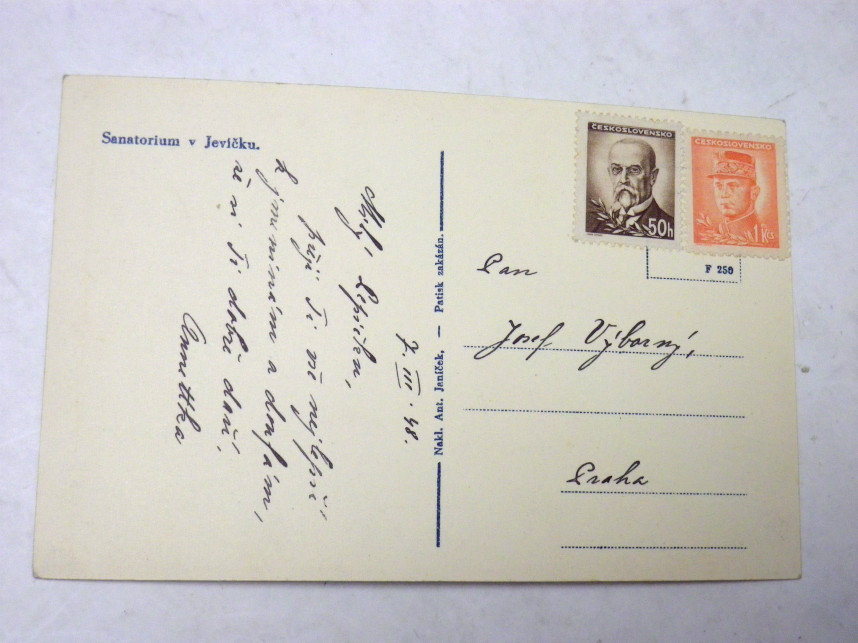 Sanatorium v Jevíčku.
7. III. 48.
Milý
přeji Ti vše nejlepší
k jmeninám a doufám,
že si Ti dobře daří,
Nakl. Ant. Janíček, — Patisk zakázán.
ČESKOSLOVENSKO
50h
ČESKOSLOVENSKO
1 Kčs
F 250
Pan
Josef Výborný,
Praha